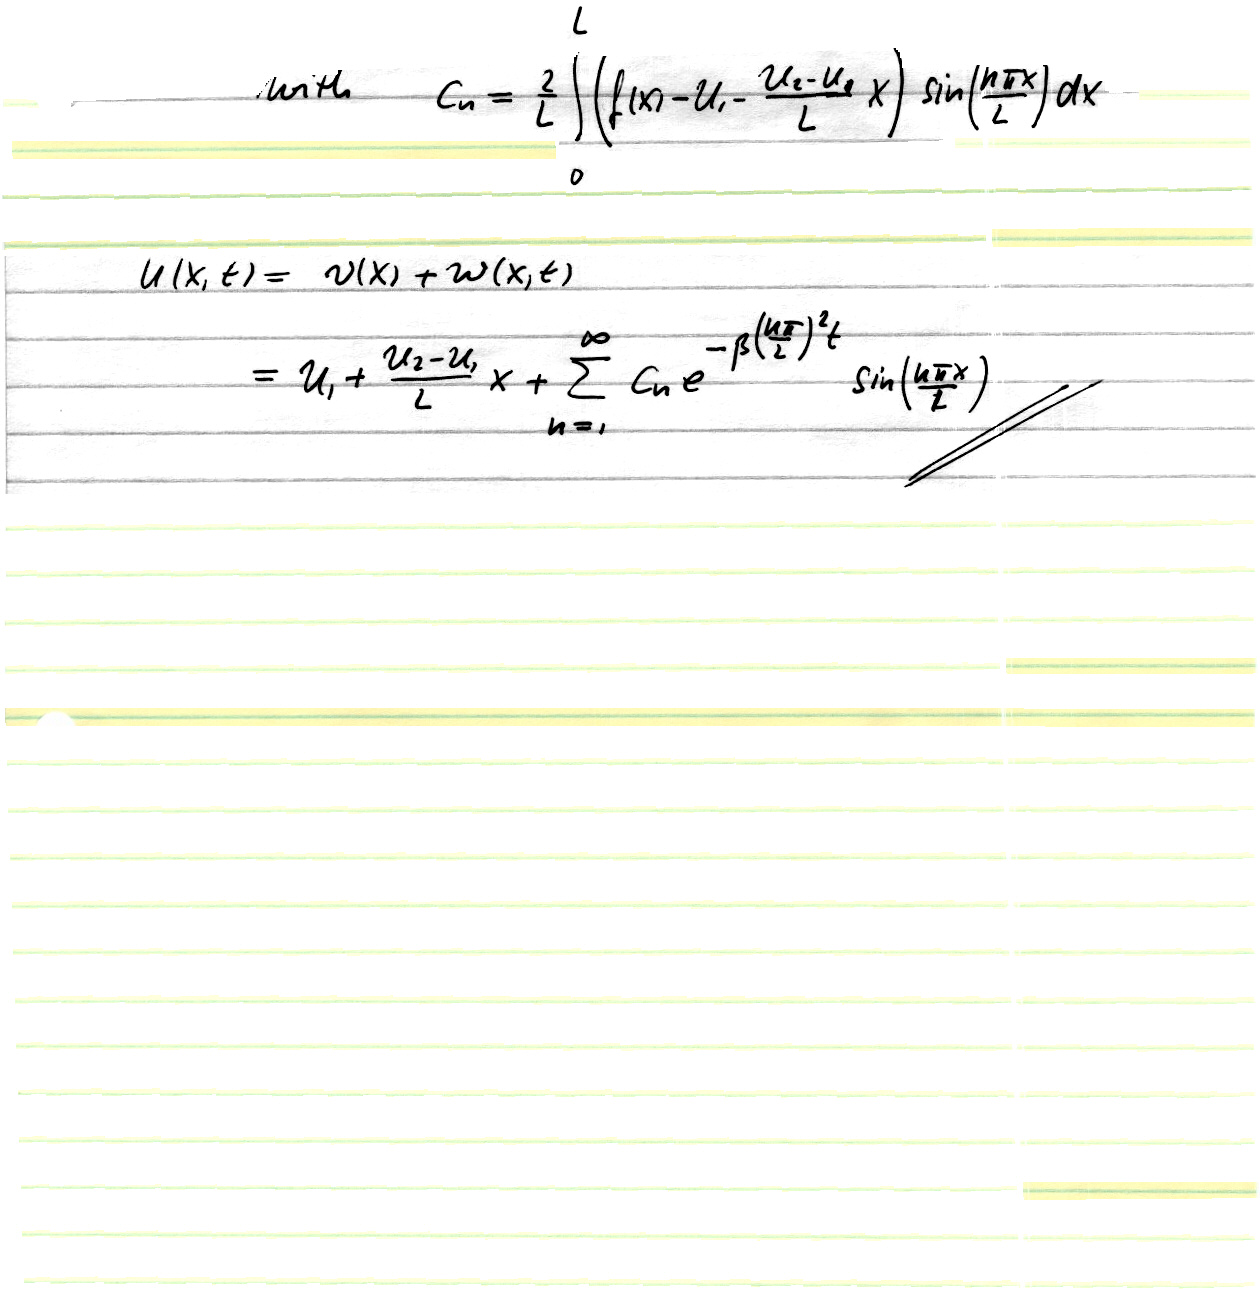 with Cn = 2/L ∫₀ᴸ (f(x) - U₁ - (U₂-U₁)/L x) sin(nπx/L) dx
u(x,t) = v(x) + w(x,t)
= U₁ + (U₂-U₁)/L x + ∑ₙ₌₁^∞ Cn e^(-β(nπ/L)²t) sin(nπx/L)